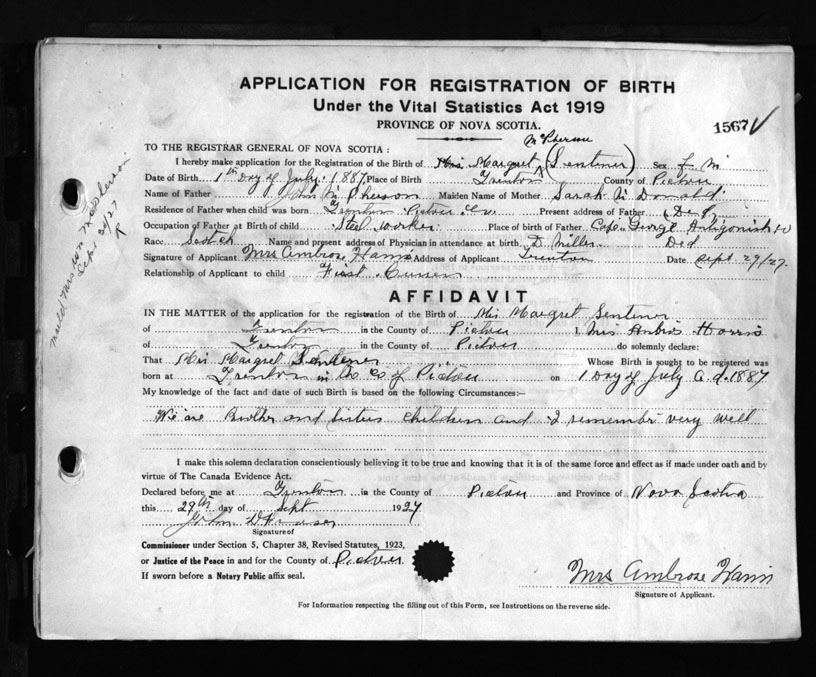 APPLICATION FOR REGISTRATION OF BIRTH
Under the Vital Statistics Act 1919
PROVINCE OF NOVA SCOTIA.
1567
McPherson
TO THE REGISTRAR GENERAL OF NOVA SCOTIA :
I hereby make application for the Registration of the Birth of Mrs Margret (Sentener) Sex f M
Date of Birth 1st Day of July. 1887 Place of Birth Trenton County of Pictou
Name of Father John McPherson Maiden Name of Mother Sarah McDonald
Residence of Father when child was born Trenton Pictou Co. Present address of Father
Occupation of Father at Birth of child Steel worker Place of birth of Father Cape George Antigonish
Race Scotch Name and present address of Physician in attendance at birth D Miller Ded
Signature of Applicant Mrs Ambrose Harris Address of Applicant Trenton Date Sept 29/27.
Relationship of Applicant to child First Cussen
AFFIDAVIT
IN THE MATTER of the application for the registration of the Birth of Mrs Margret Sentener
of Trenton in the County of Pictou I, Mrs Harris
of Trenton in the County of Pictou do solemnly declare:
That Mrs Margret Sentener Whose Birth is sought to be registered was
born at Trenton in the Co of Pictou on 1 Day of July A.d. 1887
My knowledge of the fact and date of such Birth is based on the following Circumstances:—
We are Brother and Sisters Children and I remember very well
I make this solemn declaration conscientiously believing it to be true and knowing that it is of the same force and effect as if made under oath and by
virtue of The Canada Evidence Act.
Declared before me at Trenton in the County of Pictou and Province of Nova Scotia
this 29th day of Sept 1927
John
Signature of
Commissioner under Section 5, Chapter 38, Revised Statutes, 1923,
or Justice of the Peace in and for the County of Pictou
If sworn before a Notary Public affix seal.
Mrs Ambrose Harris
Signature of Applicant.
For Information respecting the filling out of this Form, see Instructions on the reverse side.